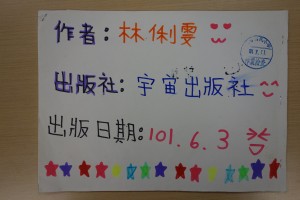 作者：林俐雯
出版社：宇宙出版社
出版日期：101.6.3